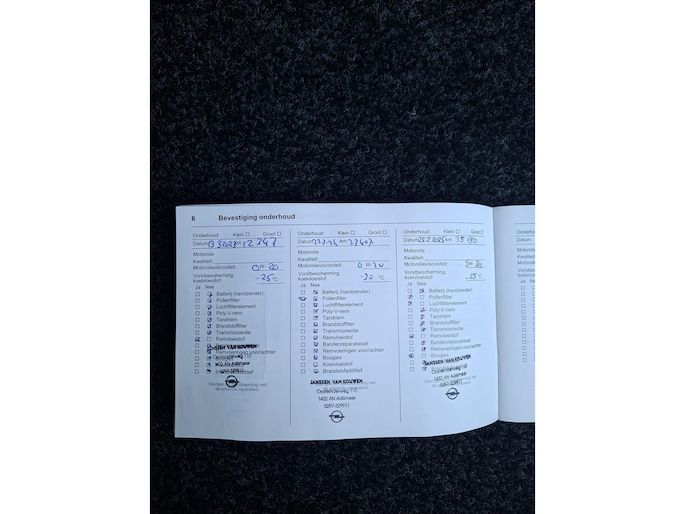 6 Bevestiging onderhoud
Onderhoud: Klein Groot
Datum 13.3.2023 km 12347
Motorolie
Kwaliteit:
Motorolieviscositeit: 0W-20
Vorstbescherming
koelvloeistof -25°C
Ja Nee
Batterij (handzender)
Pollenfilter
Luchtfilterelement
Poly-V-riem
Tandriem
Brandstoffilter
Transmissieolie
Remvloeistof
Remvoeringen voor/achter
JANSSEN VAN KOUWEN
1432 AN Aalsmeer
0297-329911
Onderhoud: Klein Groot
Datum km 23407
Motorolie
Kwaliteit:
Motorolieviscositeit: 0W-20
Vorstbescherming
koelvloeistof -30°C
Ja Nee
Batterij (handzender)
Pollenfilter
Luchtfilterelement
Poly-V-riem
Tandriem
Brandstoffilter
Transmissieolie
Remvloeistof
Bandenreparatieset
Remvoeringen voor/achter
Bougies
Koelvloeistof
Brandstofadditief
JANSSEN VAN KOUWEN
Oosteinderweg 110
1432 AN Aalsmeer
0297-329911
Onderhoud: Klein Groot
Datum 25.2.2025 km
Motorolie
Kwaliteit:
Motorolieviscositeit:
Vorstbescherming
koelvloeistof -25°C
Ja Nee
Batterij (handzender)
Pollenfilter
Luchtfilterelement
Poly-V-riem
Tandriem
Brandstoffilter
Transmissieolie
Remvloeistof
Bandenreparatieset
Remvoeringen voor/achter
JANSSEN VAN KOUWEN
Oosteinderweg 110
1432 AN Aalsmeer
0297-329911